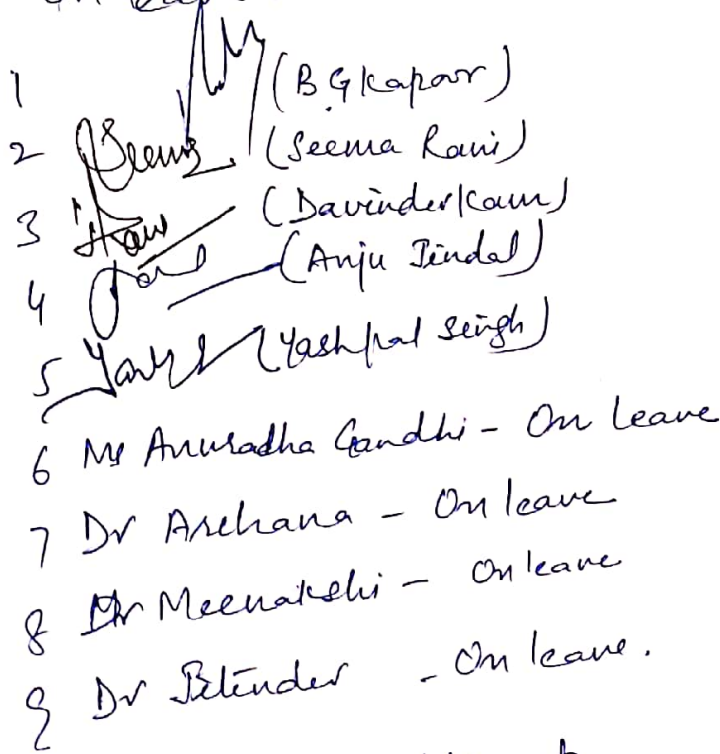 1 (B.G Kapoor)
2 Seema (Seema Rani)
3 Kaur (Davinder Kaur)
4 (Anju Jindal)
5 (Yashpal Singh)
6 Ms Anuradha Gandhi - On leave
7 Dr Archana - On leave
8 Dr Meenakshi - On leave
9 Dr Jitender - On leave.